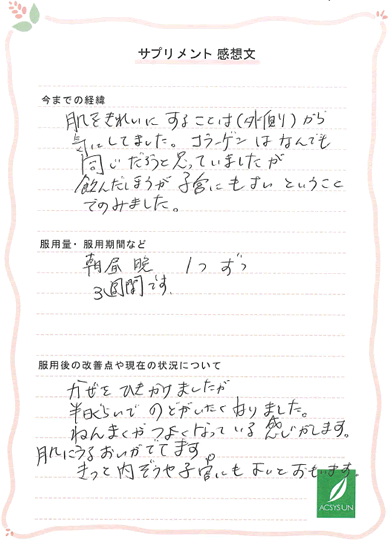 サプリメント 感想文
今までの経緯
肌をきれいにすることは(外側り)から
気にしてました。コラーゲンはなんでも
同じだろうと思っていましたが
飲んだほうが子宮にもよい ということ
でのみました。
服用量・服用期間など
朝昼晩 1つずつ
3週間です。
服用後の改善点や現在の状況について
かぜをひきかけましたが
半日ぐらいで のどがいたくなりました。
ねんまくがつよくなっている感じがします。
肌にうるおいがでてます。
きっと内ぞうや子宮にもよいとおもいます。
ACSYSUN